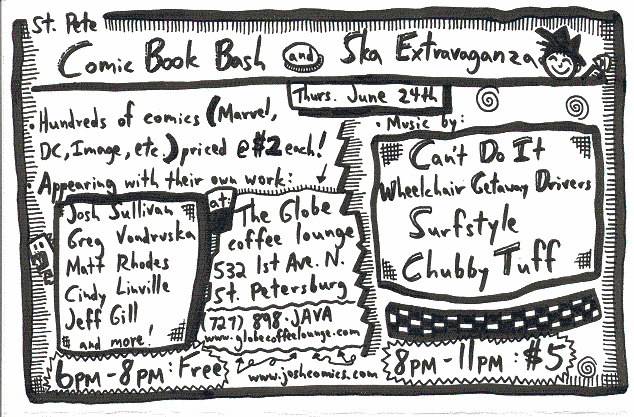 St. Pete
Comic Book Bash and Ska Extravaganza
Thurs. June 24th
• Hundreds of comics (Marvel,
DC, Image, etc.) priced @ $2 each!
• Appearing with their own work:
Josh Sullivan
Greg Vondruska
Matt Rhodes
Cindy Linville
Jeff Gill
and more!
6PM - 8PM: Free
at:
The Globe
coffee lounge
532 1st Ave. N.
St. Petersburg
(727) 898-JAVA
www.globecoffeelounge.com
www.joshcomics.com
• Music by:
Can't Do It
Wheelchair Getaway Drivers
Surfstyle
Chubby Tuff
8PM - 11PM: $5